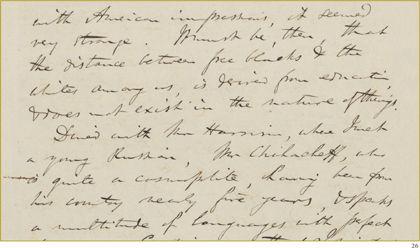 with American impressions, it seemed
very strange. It must be, then, that
the distance between free blacks & the
whites among us, is derived from education,
& does not exist in the nature of things.
Dined with Mr Harrison, where I met
a young Russian, Mr Chihacheff, who
is quite a cosmopolite, having been from
his country nearly five years, & speaks
a multitude of languages with perfect
26